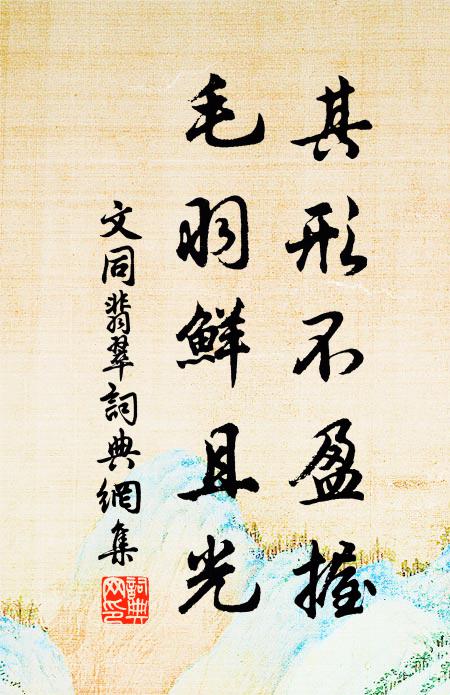 其形不盈握
毛羽鮮且光
文同翡翠詞典網集
詞典網印